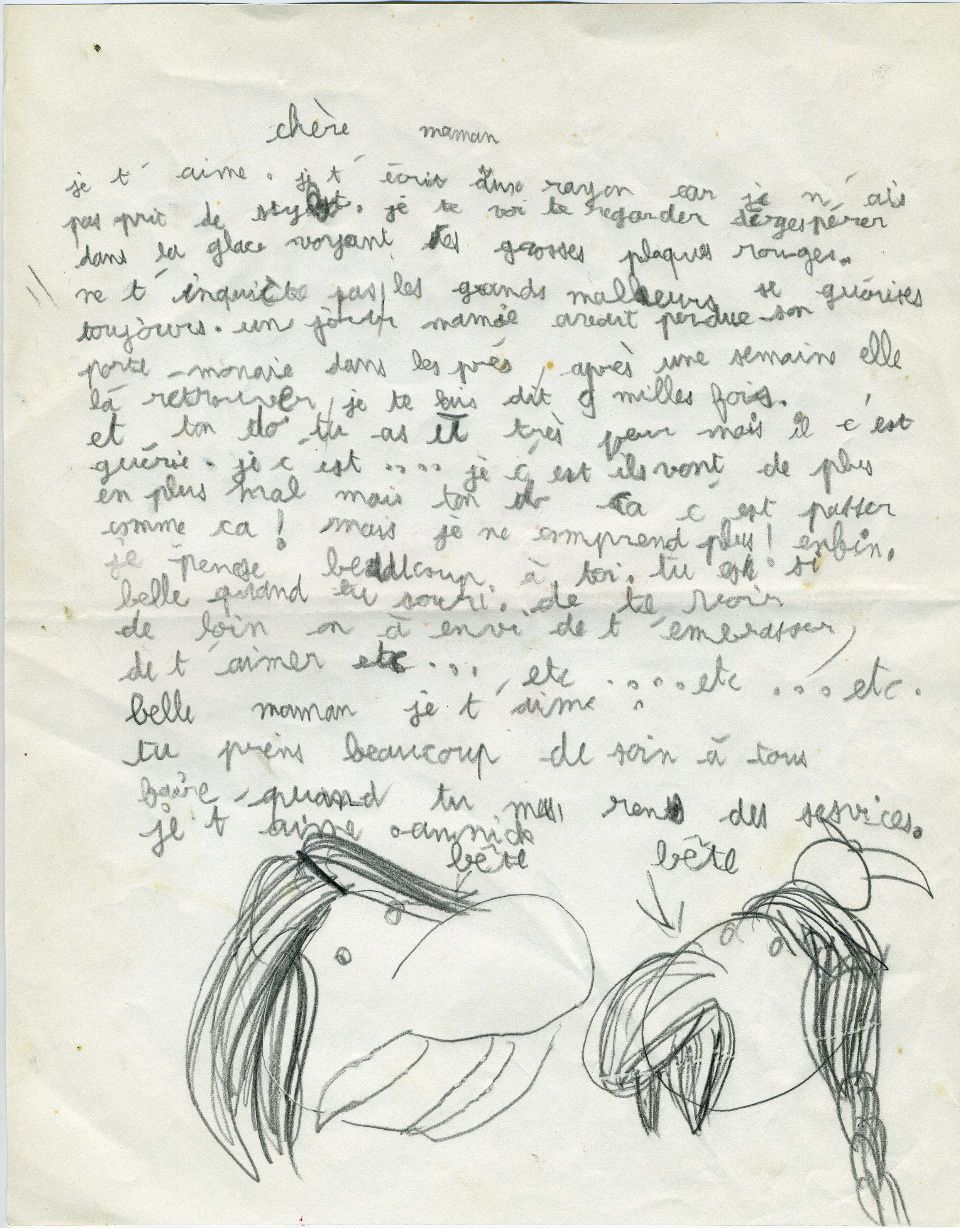 chère maman
je t' aime. je t' écrit d'une rayon car je n' ais
pas prit de stylot. je te voi te regarder dérgespérer
dans la glace voyant des grosses plaques rouges.
ne t' inquiète pas les grands malheurs se guérises
toujours. un jour mamée avait perdue son
porte-monaie dans les prés, après une semaine elle
là retrouver, je te l'ais dit 9 milles fois.
et ton do tu as u très peur mais il c'est
guérie. je c est .... je c'est ils vont de plus
en plus mal mais ton do ca c est passer
comme ca! mais je ne comprend plus! enfin.
je pense beaucoup à toi. tu est si
belle quand tu souri. de te voir
de loin on à envi de t' embrasser,
de t' aimer etc ... , etc .... etc .... etc.
belle maman je t' aime.
tu prens beaucoup de soin à tous
faire quand tu rends des services.
je t aime
bête bête